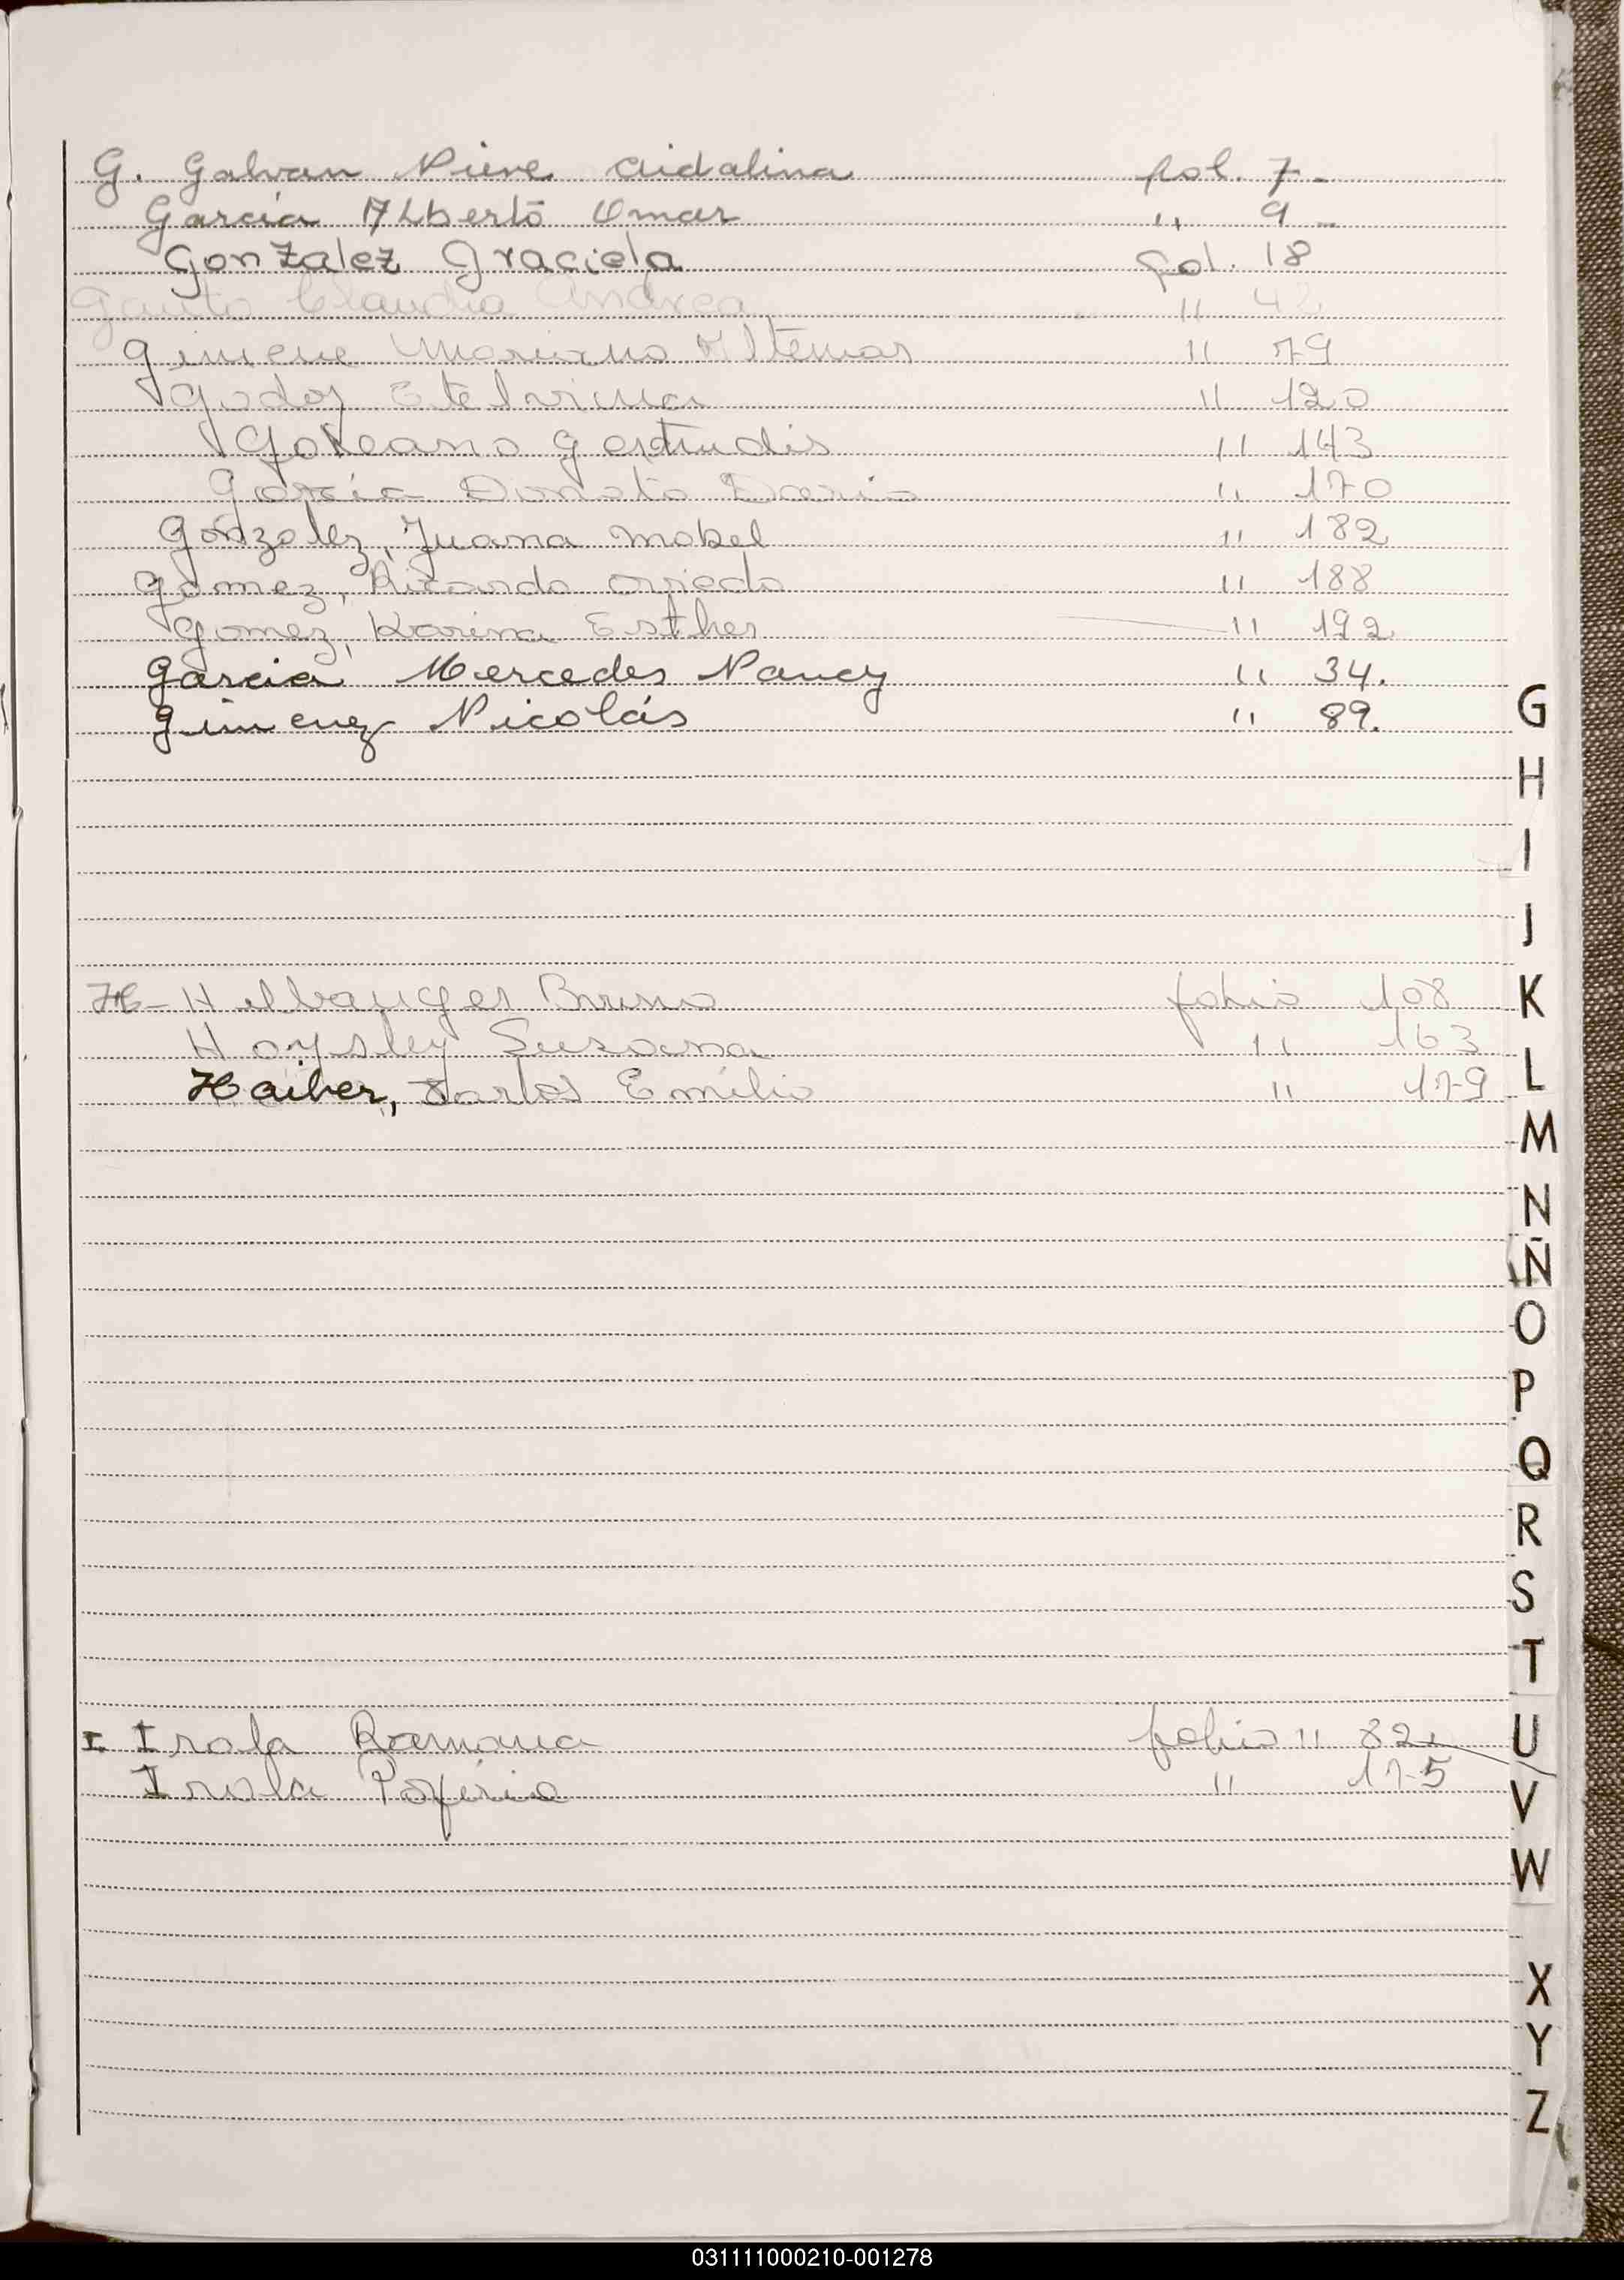 G. Galvan Nieve Aidalina fol. 7-
Garcia Alberto Omar " 9-
Gonzalez Graciela fol. 18
Gauto Claudia Andrea " 42
Gimene Mariano Altemar " 79
Godoy Etelvina " 120
Goreano Gertrudis " 143
Garcia Donato Dario " 170
Gonzalez, Juana Mabel " 182
Gomez, Ricardo Oviedo " 188
Gomez, Karina Esther " 192
Garcia Mercedes Nancy " 34.
Gimenez Nicolás " 89.
H- Bruno folio 108
Hoysley Susana " 163
Haiber, Carlos Emilio " 179
I Irala Ramona folio " 82
Irala Pofirio " 175
G
H
I
J
K
L
M
N
Ñ
O
P
Q
R
S
T
U
V
W
X
Y
Z
031111000210-001278